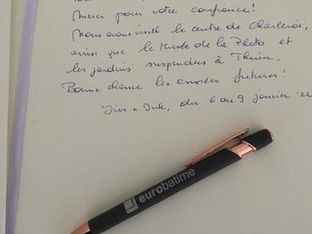 Merci pour votre confiance!
Nous avons visité le centre de Charleroi,
ainsi que le Musée de la Photo et
les jardins suspendus à Thuin.
Bonne chance les années futures!
du 6 au 9 janvier '22
eurobatime